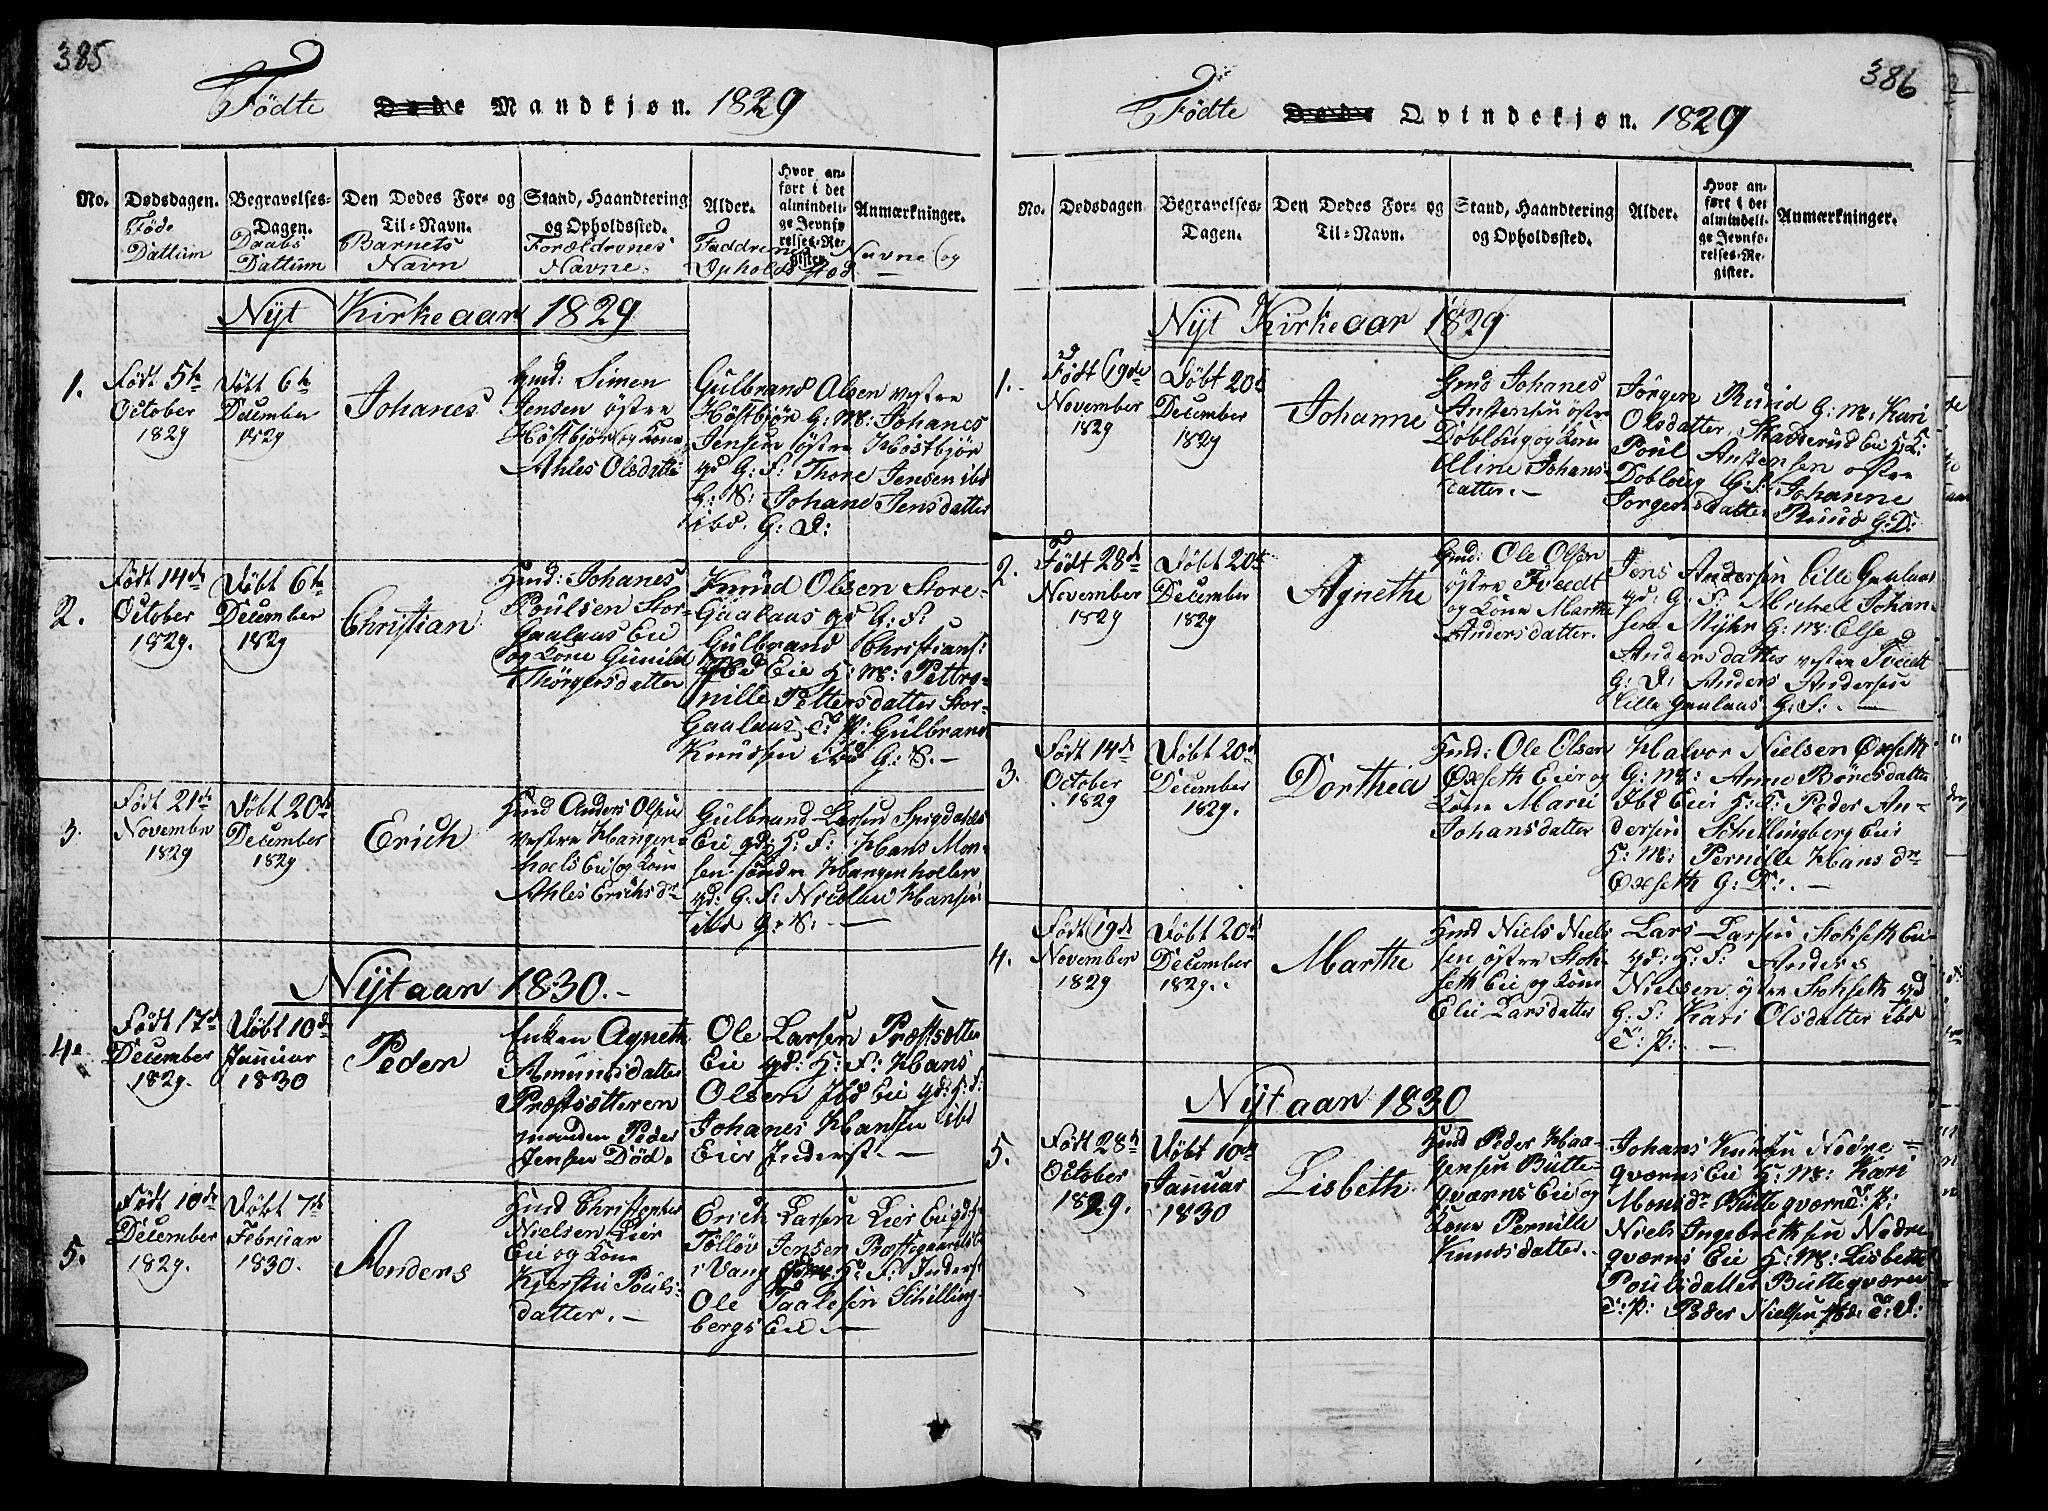 385
Fødte Døde Mandkjøn. 1829
No.
Dødsdagen.
Føde
Dattum
Begravelses-
Dagen.
Daabs
Dattum
Den Dødes For- og
Til-Navn.
Barnets
Navn
Stand, Haandtering
og Opholdssted.
Forældrenes
Navne.
Alder.
Hvor an-
ført i det
almindeli-
ge Jevnfø-
relses-Re-
gister.
Anmærkninger.
Faddrenes Navne og
Opholds Stæd
Nyt Kirkeaar 1829
1.
Født 5te
October
1829
Døbt 6te
December
1829
Johanes
Gmd: Simen
Jensen østre
Høstbjør og Kone
Ahles Olsdatter
Gulbrand Olsen vestre
Høstbjør G: M: Johanes
Jensen østre Høstbjør
gd G: F: Thore Jensen ibd
G: K: Johane Jensdatter
ibd. G: D:
2.
Født 14de
October
1829.
Døbt 6te
December
1829
Christian
Hmd: Johanes
Poulsen Stor-
Gaalaas Eie
og Kone Gunild
Thorgersdatter
Knud Olsen Store-
Gaalaas gd G: F:
Gulbrand Christians:
Ibd Eie H: M: Pettro-
nille Pettersdatter Stor-
Gaalaas, T: P: Gulbrand
Knudsen ibd G: K. -
3.
Født 21de
November
1829
Døbt 20de
December
1829
Erich
Hmd Anders Olsen
vestre Hangen-
hoels Eie og Kone
Ahles Erichsdr
Gulbrand Larsen Spigdahls
Eie gd: H: F: Hans Mon-
sen søndre Hangenhoelen
gd: G. F: Nicolai Hansen
ibd G: K: -
Nyt aar 1830. -
4.
Født 17de
December
1829.
Døbt 10de
Januar
1830
Peder
Enken Agneth
Amundsdatter
Præstsætteren
manden Peder
Jensen Død.
Ole Larsen Præstsætter
Eie gd: H: F: Hans
Olsen Ibd Eie gd: H: F:
Johanes Hansen ibd
Eier Inderst. -
5.
Født 10de
December
1829.
Døbt 7te
Februar
1830.
Anders
Hmd Christopher
Nielsen Lier
Eie og Kone
Kjersti Pouls-
datter. -
Erich Larsen Lier Eie gd H: F:
Tolløv Jensen Præstegaards
i Vang H: F: Inderst
Ole Taalesen Schilling-
bergs Eie. -
386
Fødte Døde Qvindekjøn. 1829
No.
Dødsdagen
Begravelses-
Dagen.
Den Dødes For- og
Til-Navn.
Stand, Haandtering
og Opholdssted.
Alder.
Hvor an-
ført i det
almindeli-
ge Jevnfø-
relses-Re-
gister.
Anmærkninger.
Nyt Kirkeaar 1829
1.
Født 19de
November
1829
Døbt 20de
December
1829
Johanne
Gmd Johanes
Anstensen østre
Dobloug og Kone
Eline Johans-
datter. -
Jörgen Ruud G: M: Kari
Olsdatter, Skadderud Eie H: K:
Poul Anstensen østre
Dobloug G: F: Johanne
Jorgensdatter Ruud G: D:
2.
Født 28de
November
1829
Døbt 20de
December
1829
Agnethe
Gmd: Ole Olsen
østre Tveedt
og Kone Marthe
Andersdatter.
Jens Andersen Lille Gaalaas
gd: G: F. Michel Johan-
sen Myhr G: M: Else
Andersdatter vestre Tveedt
G: D: Anders Andersen
Lille Gaalaas G: F: -
3.
Født 14de
October
1829
Døbt 20de
December
1829.
Dorthea
Hmd: Ole Olsen
Oxseth Eier og
Kone Marie
Johansdatter
Halvor Nielsen Oxseth
G: M: Anne Børesdatter
Ibd Eie H: K: Peder An-
dersen Schillingberg Eie
H: M: Pernille Hansdr
Oxseth G: D: . -
4.
Født 19de
November
1829
Døbt 20de
December
1829. .
Marthe
Hmd Niels Niels
sen østre Stok-
seth Eie og Kone
Elie Larsdatter
Lars Larsen Stokseth Eie
gd: H: F: Anders
Nielsen østre Stokseth gd
G: F: Kari Olsdatter ibd
T: P: . -
Nyt aar 1830
5.
Født 28de
October
1829.
Døbt 10de
Januar
1830
Lisbeth
Hmd Peder Haa-
gensen Butte-
qværns Eie og
Kone Pernille
Knudsdatter. -
Johans Knudsen Nedre-
qværns Eie H: M: Kari
Monsdr Butteqværn T: P:
Niels Ingebrethsen Nedre
qværns Eie H: M: Lisbeth
Poulsdatter Butteqværn
T: P: Peder Nielsen ibd: T: D: